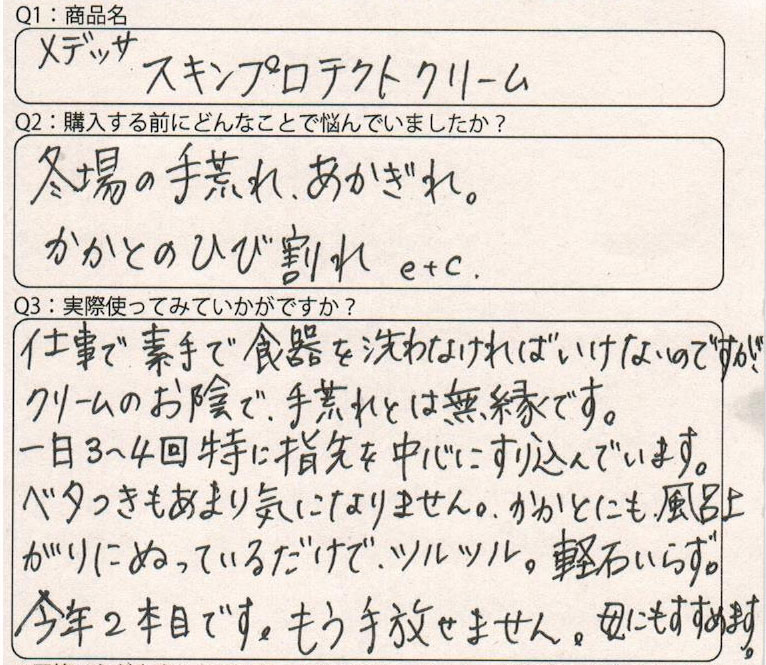 Q1：商品名
メデッサ スキンプロテクトクリーム
Q2：購入する前にどんなことで悩んでいましたか？
冬場の手荒れ、あかぎれ。
かかとのひび割れ etc.
Q3：実際使ってみていかがですか？
仕事で素手で食器を洗わなければいけないのですが、
クリームのお陰で、手荒れとは無縁です。
一日3〜4回特に指先を中心にすり込んでいます。
ベタつきもあまり気になりません。かかとにも、風呂上
がりにぬっているだけで、ツルツル。軽石いらず。
今年2本目です。もう手放せません。母にもすすめます。